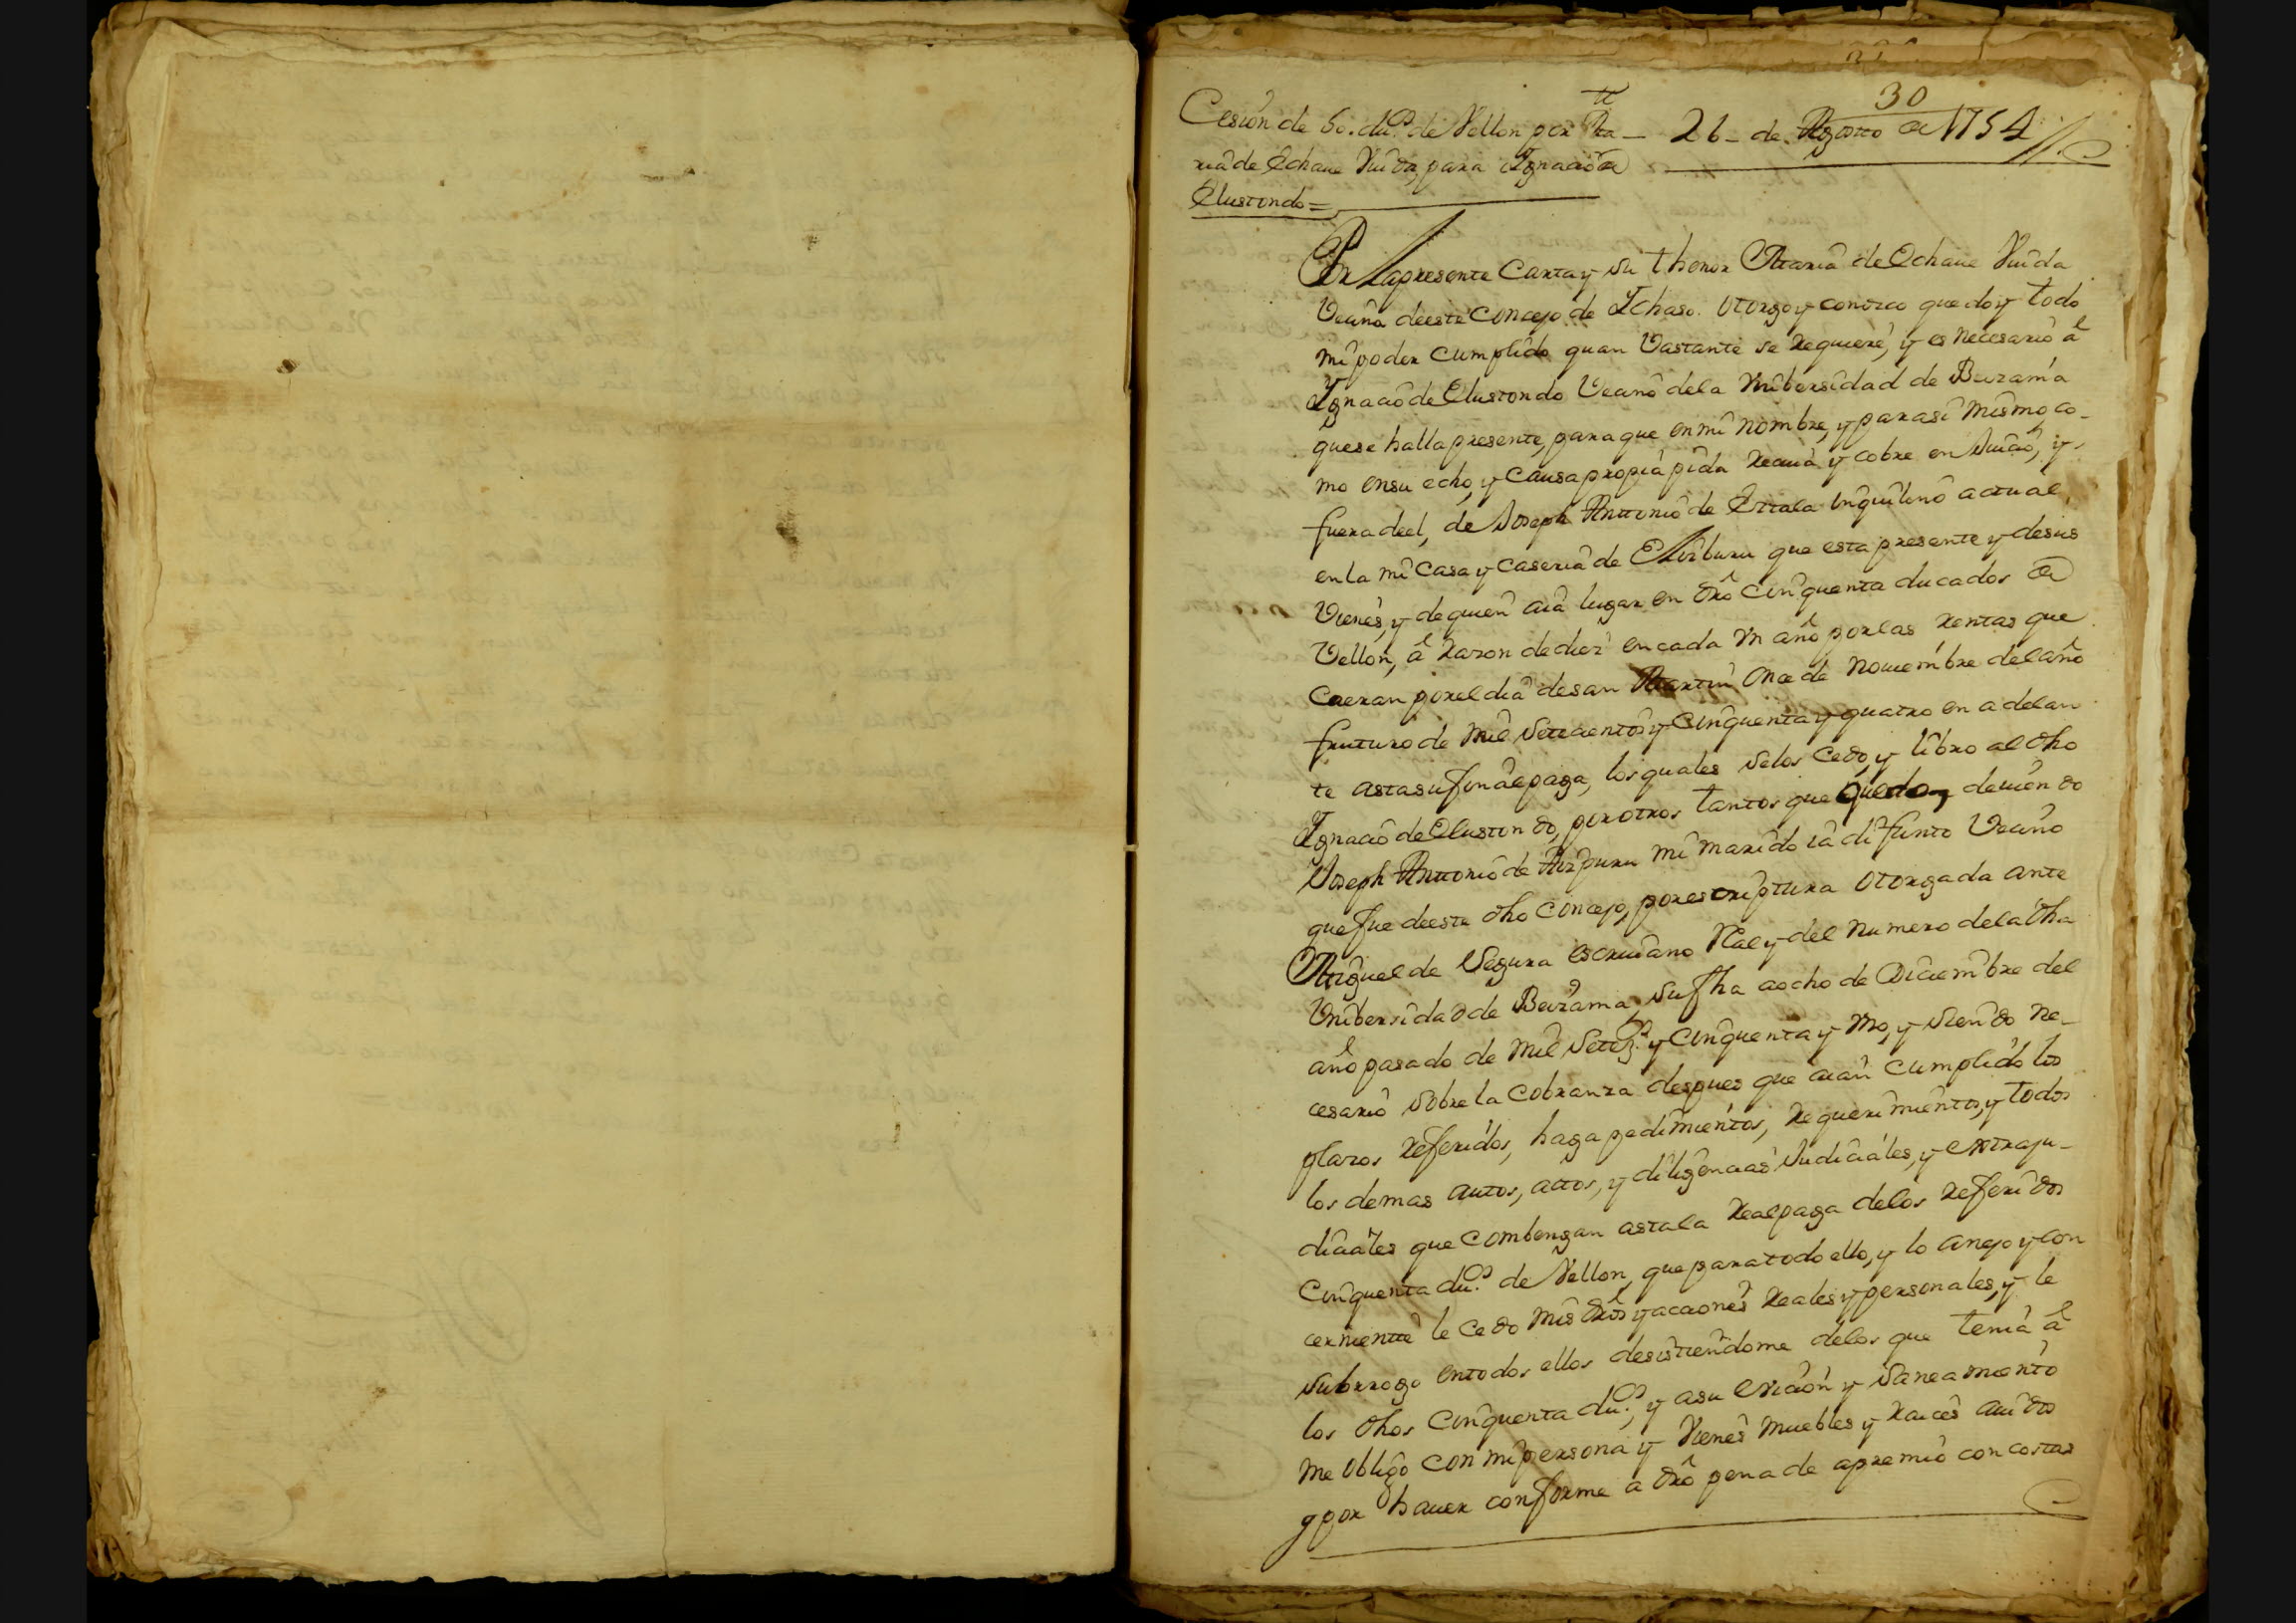 30
Cesion de 50. du.^s de Vellon por Ma- 26- de Agosto de 1754
ria de Echaue Viuda, para Ignacio de
Elustondo=
Por la presente Carta y su thenor Maria de Echaue Viuda
Vecina de este Concejo de Ychaso. Otorgo y conozco que doy todo
mi poder cumplido quan Vastante se requiere, y es necesario â
Ygnacio de Elustondo Vecino dela Vnibersidad de Beizama
que se halla presente, para que en mi nombre, y para si mismo co-
mo en su echo, y Causa propia pida reciua y cobre en Juicio, y
fuera del, de Joseph Anttonio de Errala Inquilino actual
en la mi Casa y Caseria de Elizburu que esta presente y de sus
Vienes, y de quien aia lugar en dro Cinquenta ducados de
Vellon, â razon de diez en cada Vn año por las rentas que
Caeran por el dia de san Martin Once de Nouiembre del año
fruturo de Mil Setecientos y Cinquenta y quatro en adelan
te asta su fin de paga, los quales selos Cedo, y libro al dho
Ygnacio de Elustondo, por otros tantos que quedo, deuiendo
Joseph Anttonio de Aizpuru mi marido ia difunto Vecino
que fue de este dho Concejo, por escriptura Otorgada ante
Miguel de Segura escriuano Real y del Numero dela dha
Vnibersidad de Beizama, su fha a ocho de Diciembre del
año pasado de Mil Setez.^s y Cinquenta y Vno, y siendo ne-
cesario sobre la Cobranza despues que aian cumplido los
plazos referidos, haga pedimientos, requerimientos, y todos
los demas autos, attos, y diligencias Judiciales, y extraju-
diciales que Combengan asta la real paga delos referidos
Cinquenta du.^s de Vellon, que para todo ello, y lo anejo y con
cerniente le cedo mis dros y acciones reales y personales, y le
subrrogo en todos ellos desistiendome delos que tenia â
los dhos Cinquenta du.^s, y a su euicion y saneamiento
me obligo con mi persona y Vienes muebles y raices auidos
y por hauer conforme a dro pena de apremio con costas